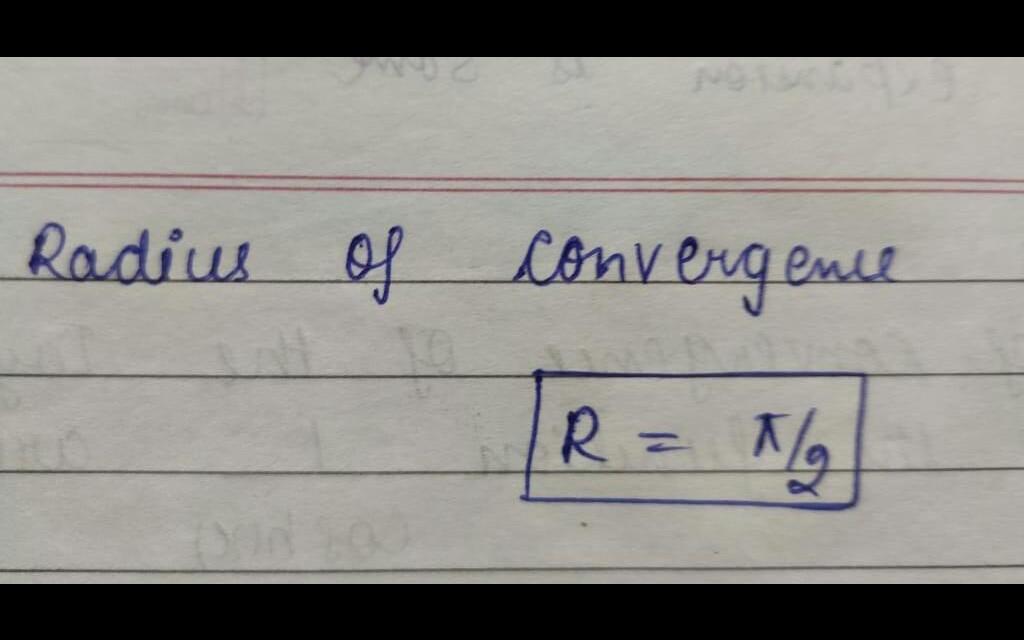 Radius of convergence
R = π/2